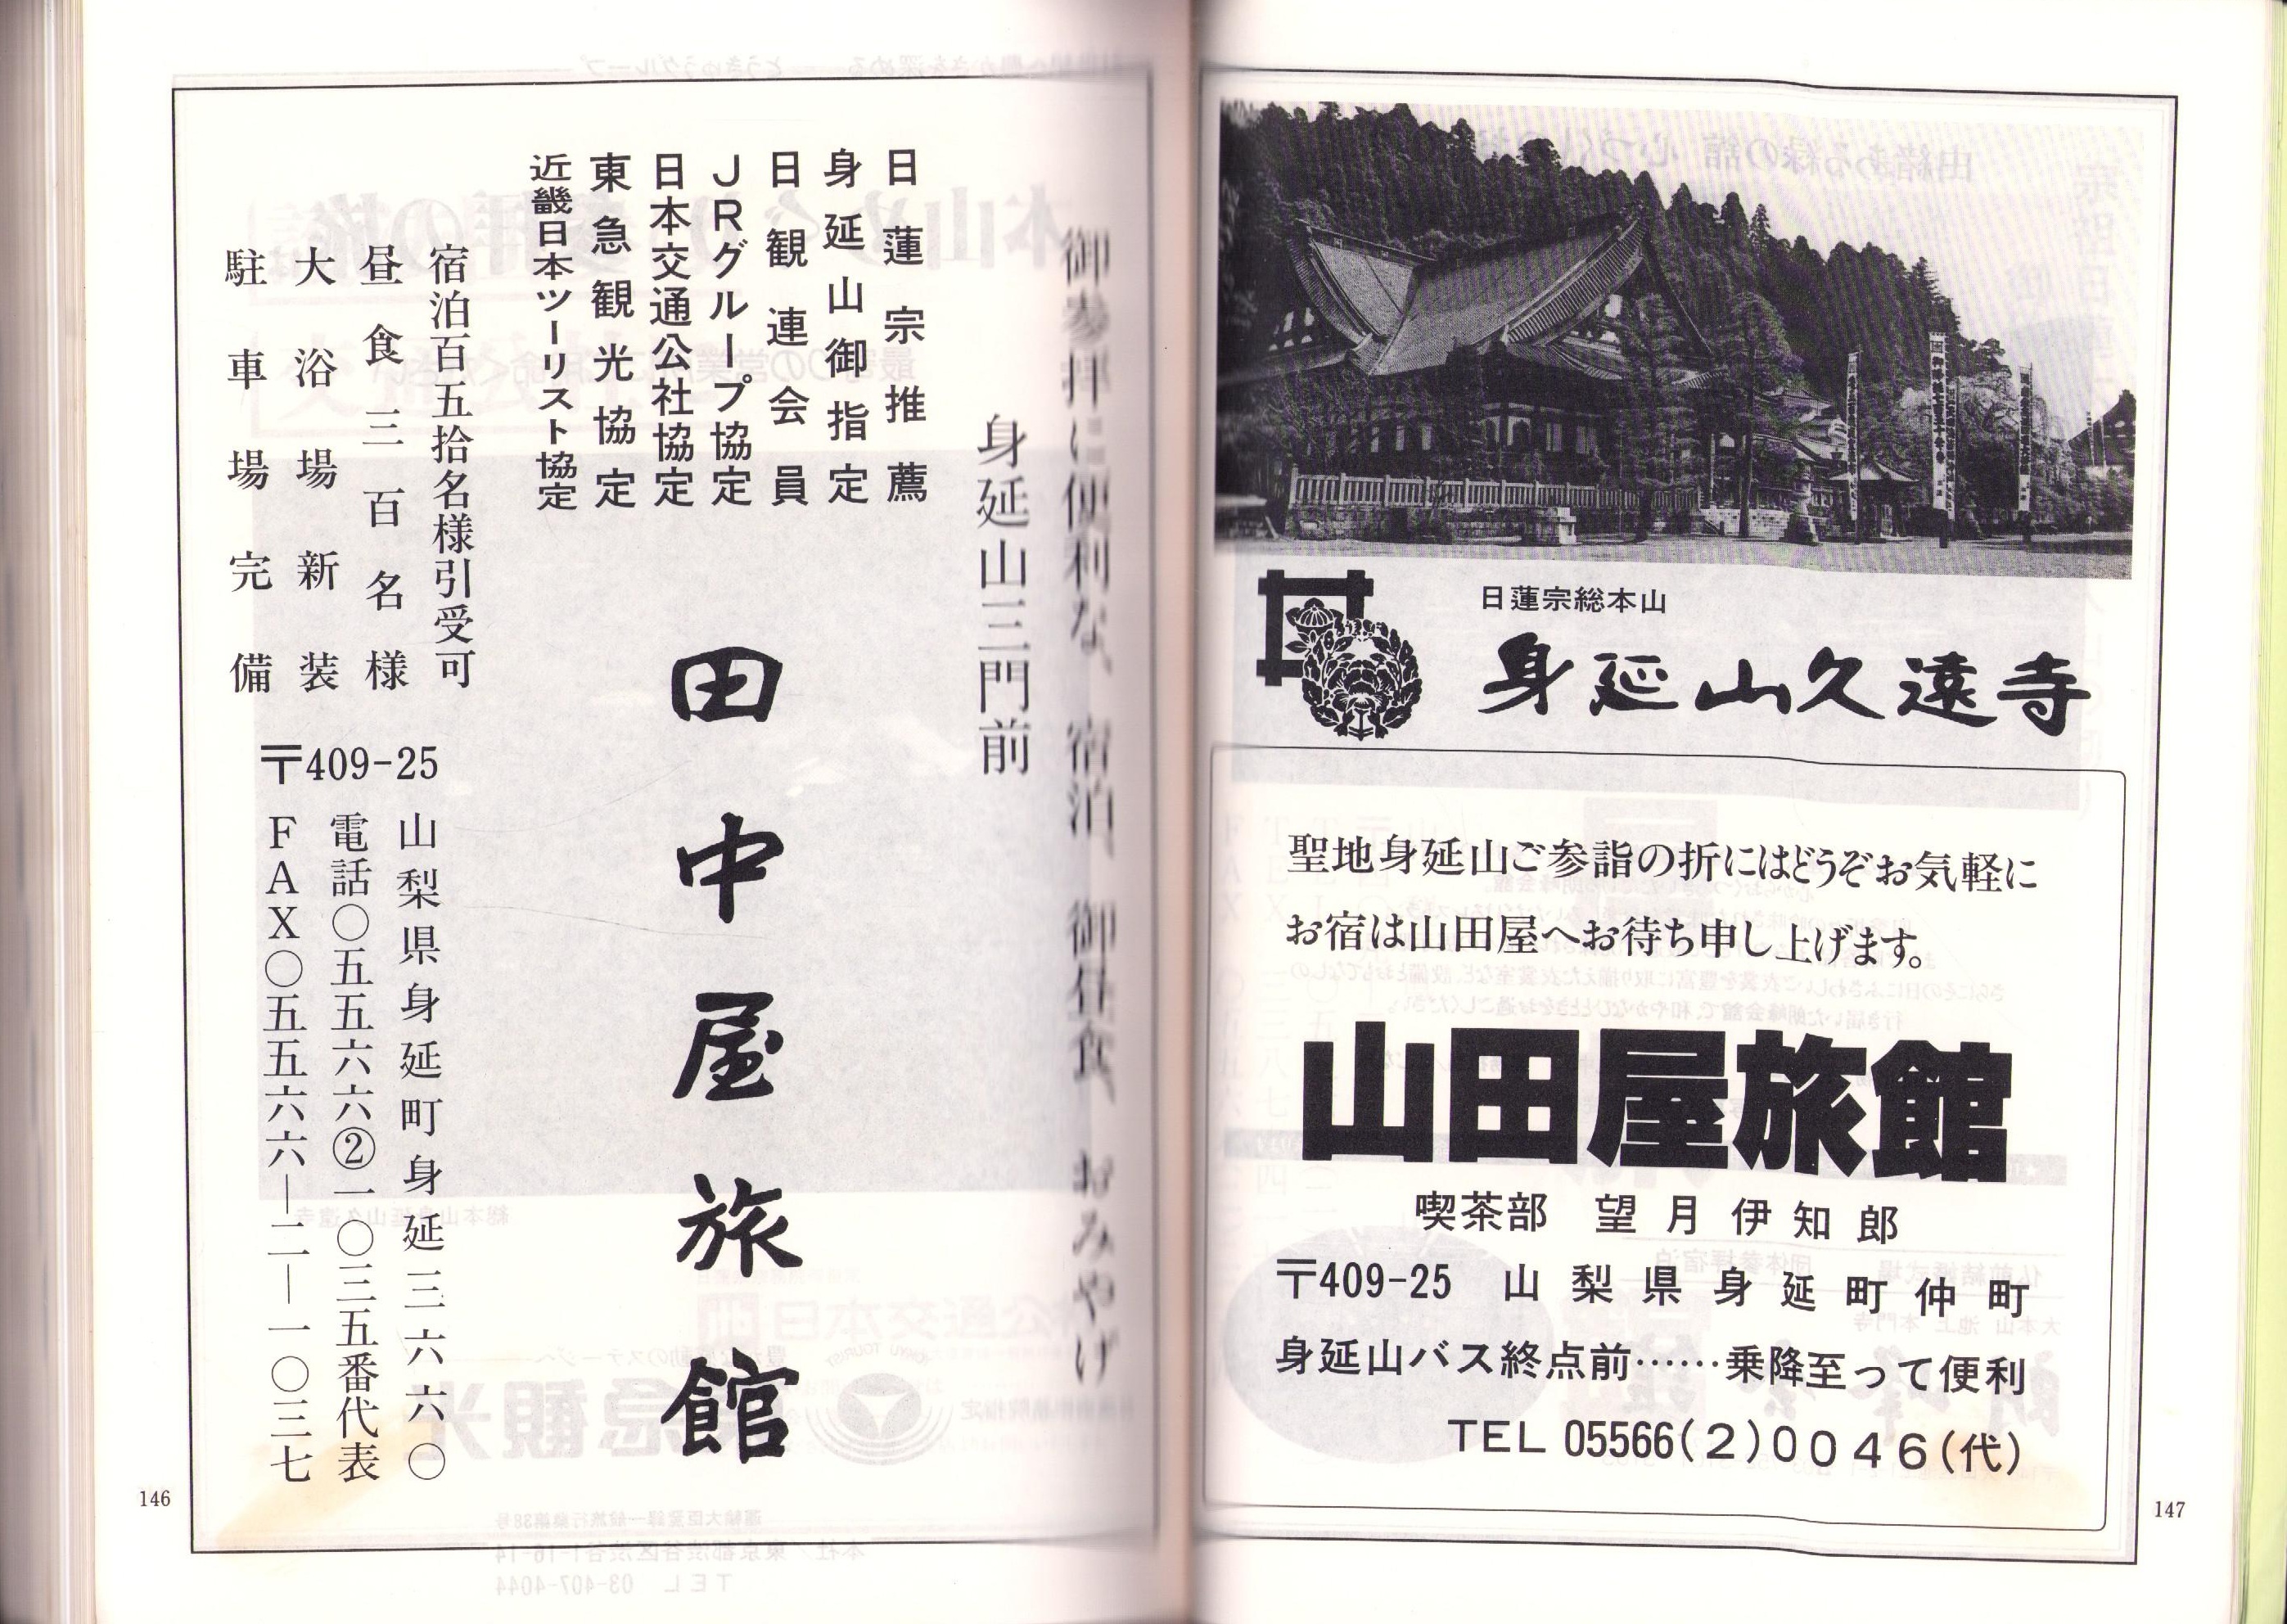 御参拝に便利な、宿泊、御昼食、おみやげ
身延山三門前
日蓮宗推薦
身延山御指定
日観連会員
JRグループ協定
日本交通公社協定
東急観光協定
近畿日本ツーリスト協定
田中屋旅館
宿泊百五拾名様引受可
昼食三百名様
大浴場新装
駐車場完備
〒409-25
山梨県身延町身延三六六〇
電話〇五五六六②一〇三五番代表
FAX〇五五六六―二―一〇三七
146
日蓮宗総本山
身延山久遠寺
聖地身延山ご参詣の折にはどうぞお気軽に
お宿は山田屋へお待ち申し上げます。
山田屋旅館
喫茶部 望月伊知郎
〒409-25 山梨県身延町仲町
身延山バス終点前……乗降至って便利
TEL 05566(2)0046(代)
147